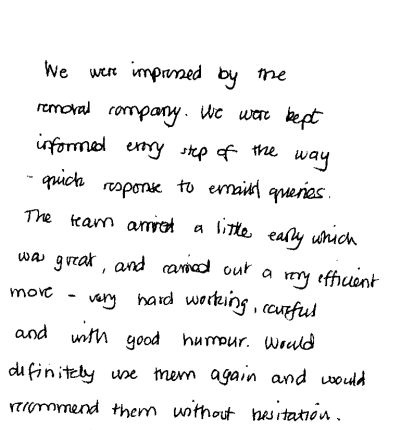 We were impressed by the
removal company. We were kept
informed every step of the way
- quick response to emaild queries.
The team arrived a little early which
was great, and carried out a very efficient
move - very hard working, careful
and with good humour. Would
definitely use them again and would
recommend them without hesitation.